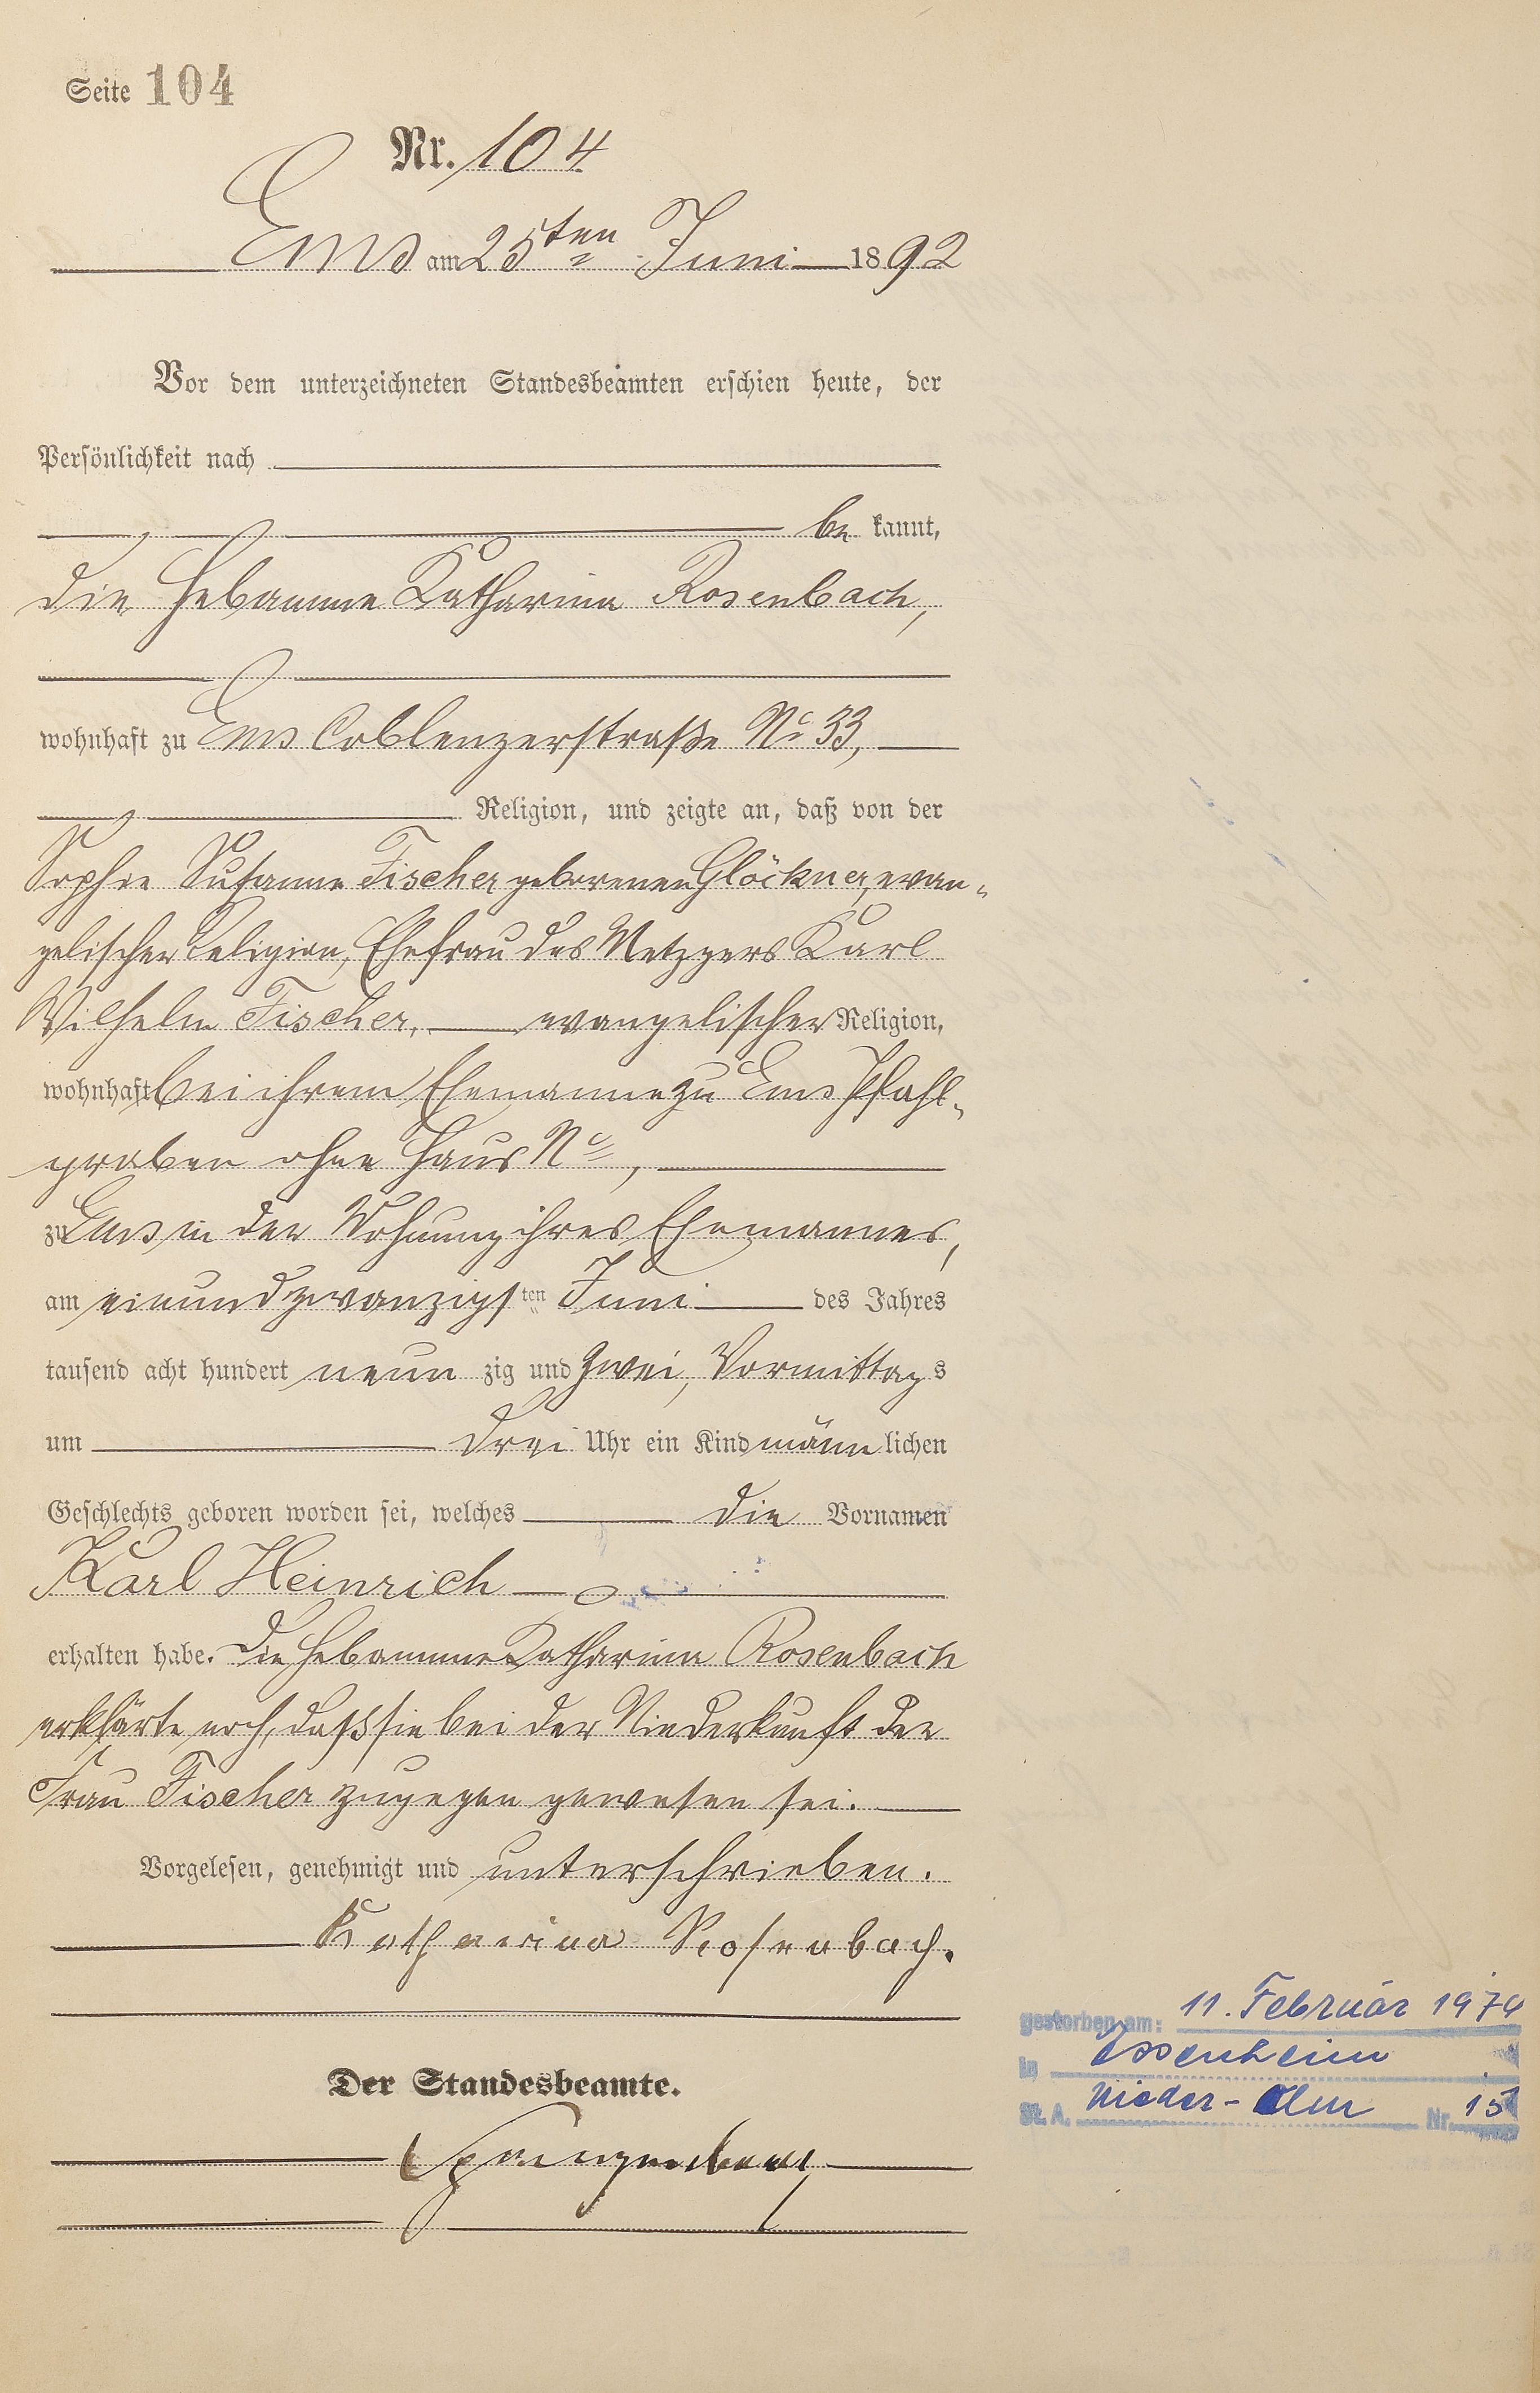 Seite 104
Nr. 104
Ems am 25ten Juni 1892
Vor dem unterzeichneten Standesbeamten erschien heute, der
Persönlichkeit nach
be kannt,
die Hebamme Katharina Rosenbach,
wohnhaft zu Ems Coblenzerstraße No 33,
Religion, und zeigte an, daß von der
Sophie Susanne Fischer geborenen Glöckner, evan-
gelischer Religion, Ehefrau des Metzgers Karl
Wilhelm Fischer, evangelischer Religion,
wohnhaft bei ihrem Ehemanne zu Ems Pfahl-
graben ohne Haus No,
zu Ems in der Wohnung ihres Ehemannes,
am einundzwanzigsten Juni des Jahres
tausend acht hundert neun zig und zwei, Vormittags
um drei Uhr ein Kind männlichen
Geschlechts geboren worden sei, welches die Vornamen
Karl Heinrich
erhalten habe. Die Hebamme Katharina Rosenbach
erklärte noch, daß sie bei der Niederkunft der
Frau Fischer zugegen gewesen sei.
Vorgelesen, genehmigt und unterschrieben.
Katharina Rosenbach.
Der Standesbeamte.
gestorben am: 11. Februar 1974
in Essenheim
St. A. Nieder-Olm Nr. 15